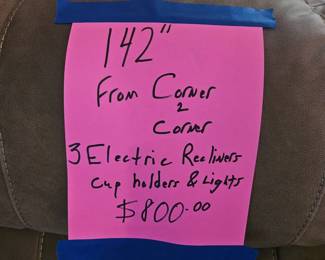 142"
From Corner
2
Corner
3 Electric Recliners
Cup holders & Lights
$800.00